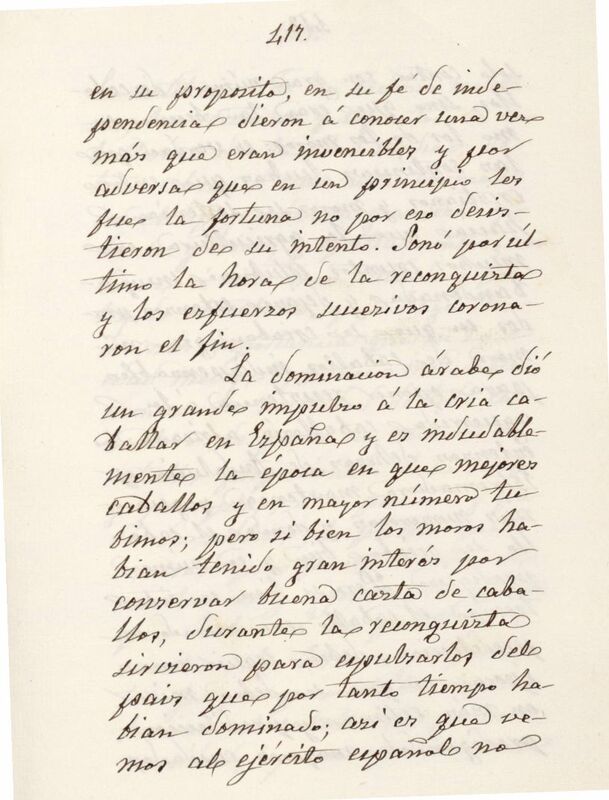 417.
en su proposito, en su fé de inde-
pendencia dieron á conocer una vez
más que eran invencibles y por
adversa que en un principio les
fue la fortuna no por eso desis-
tieron de su intento. Sonó por úl-
timo la hora de la reconquista
y los esfuerzos sucesivos corona-
ron el fin.
La dominacion árabe dió
un grande impulso á la cria ca-
ballar en España y es indudable-
mente la época en que mejores
caballos y en mayor número tu
bimos; pero si bien los moros ha-
bian tenido gran interés por
conservar buena casta de caba-
llos, durante la reconquista
sirvieron para espulsarlos del
pais que por tanto tiempo ha-
bian dominado; asi es que ve-
mos al ejército español no